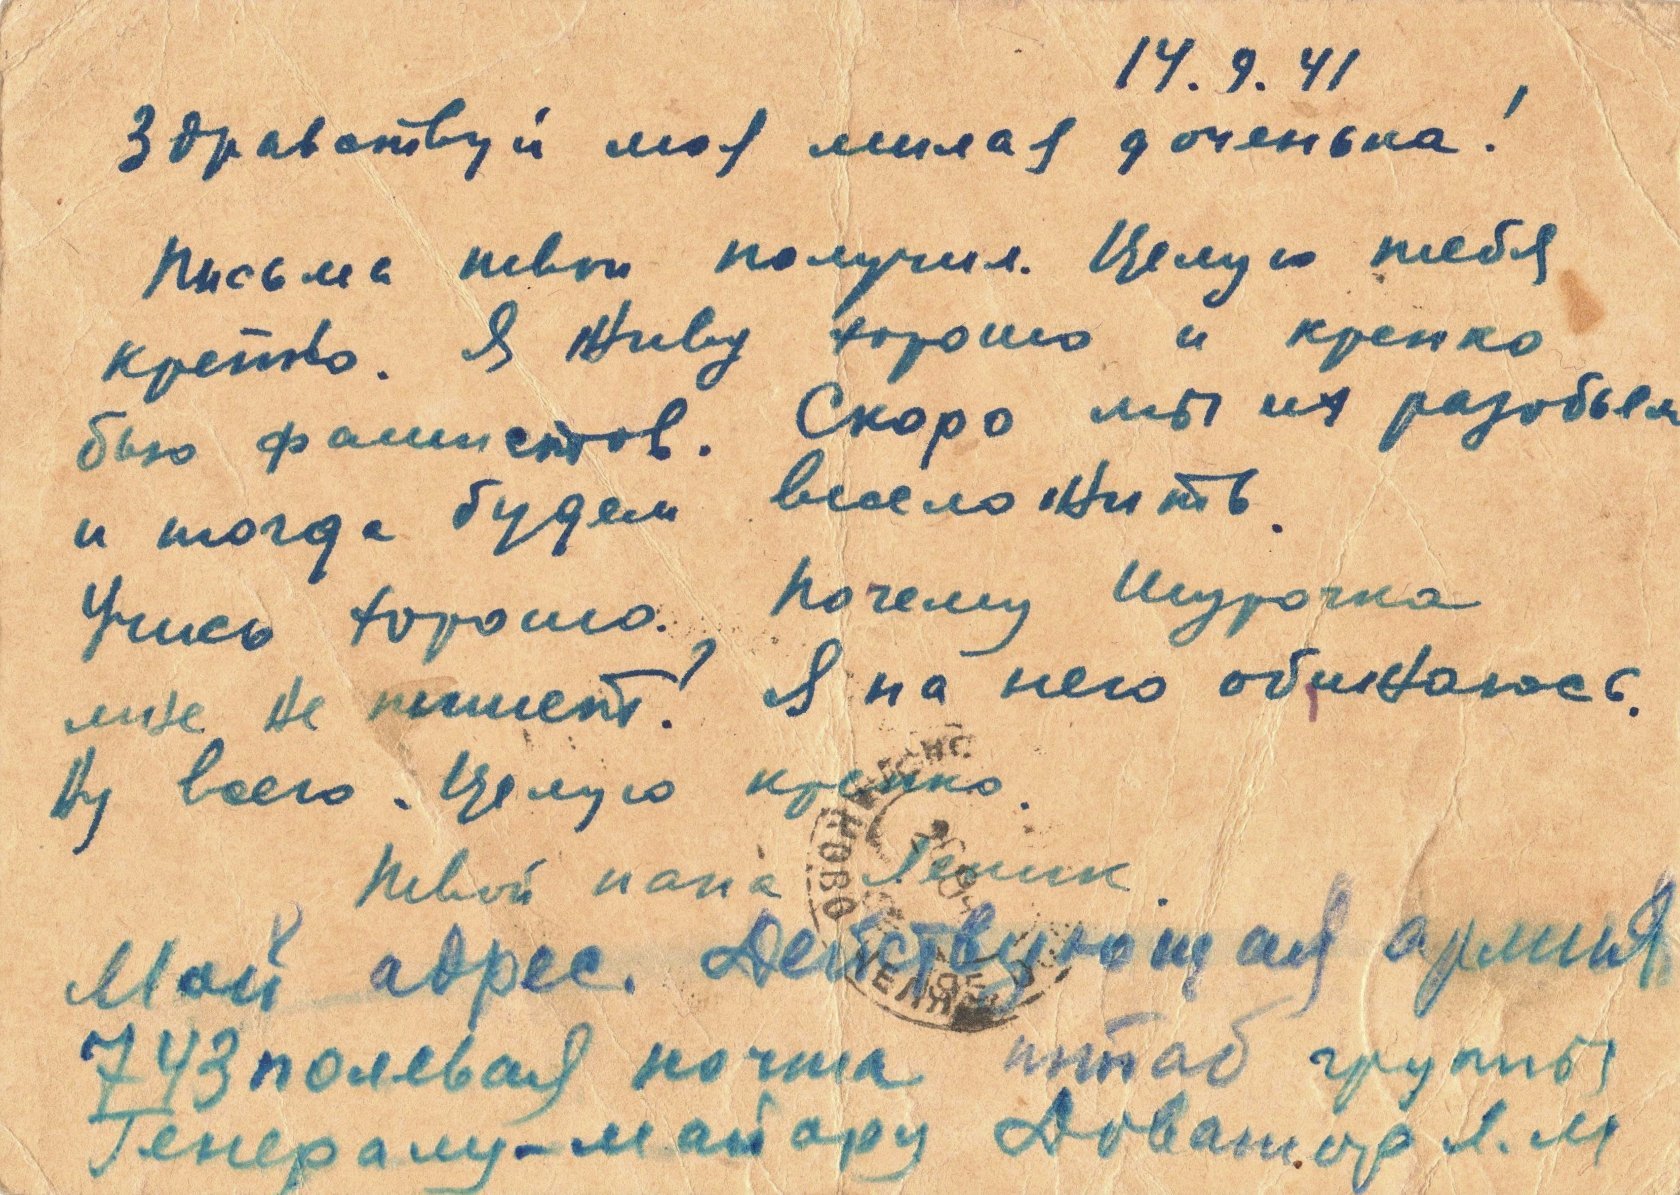 14.9.41
Здравствуй моя милая доченька!
Письма твои получил. Целую тебя
крепко. Я живу хорошо и крепко
бью фашистов. Скоро мы их разобьем
и тогда будем весело жить.
Учись хорошо. Почему Шурочка
мне не пишет? Я на него обижаюсь.
Ну всего. Целую крепко.
Твой папа
Мой адрес. Действующая армия
743 полевая почта штаб группы
Генералу-майору Доватор Л.М
НОВО